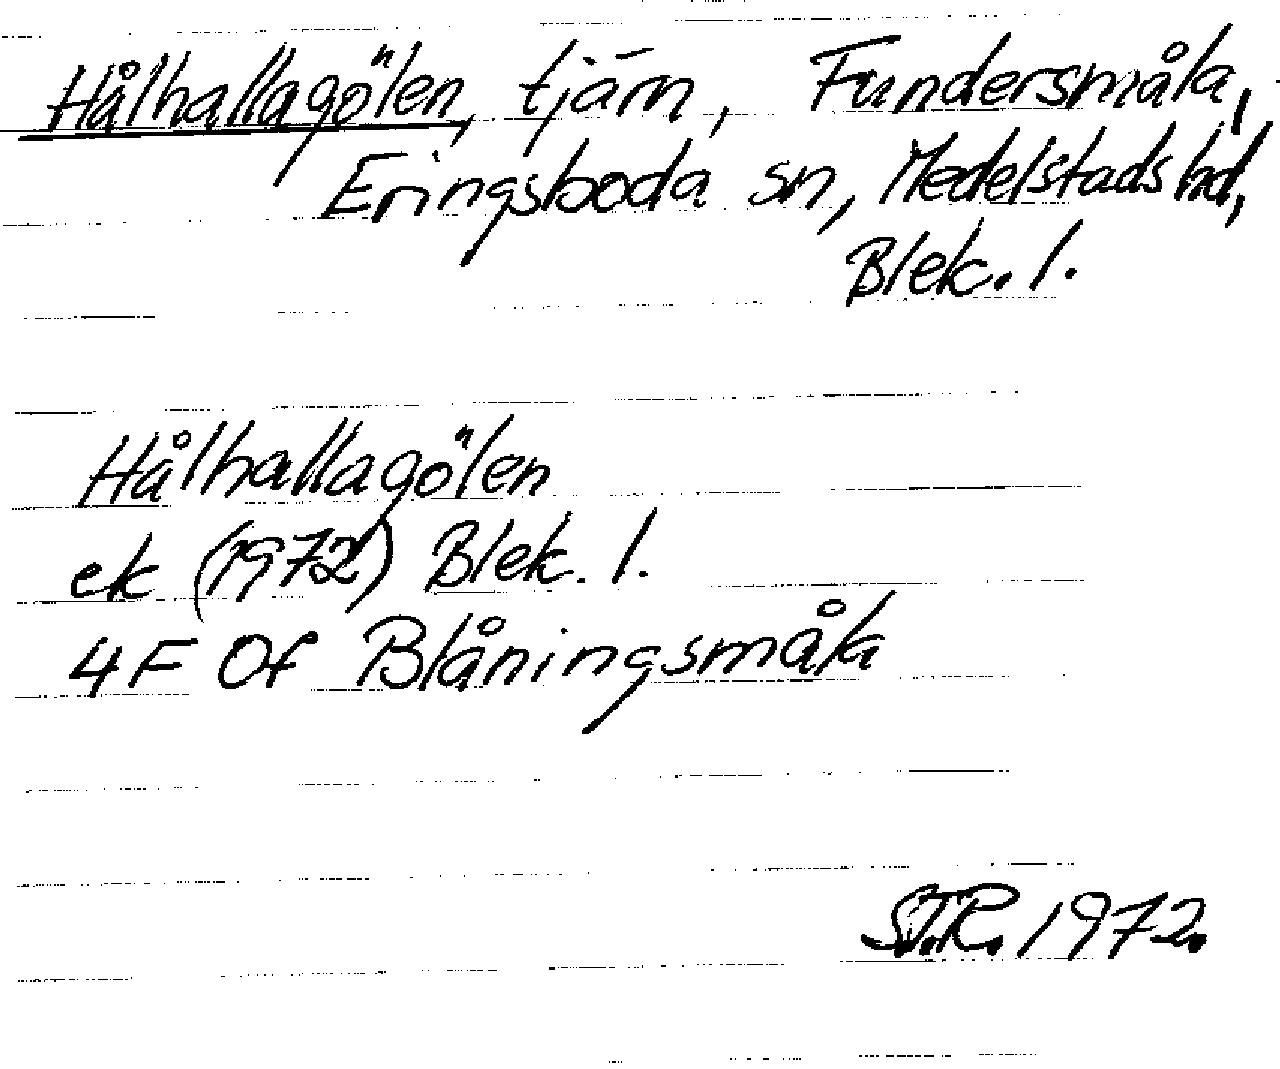 Hålhallagölen, tjärn, Fundersmåla,
Eringsboda sn, Medelstads hd,
Blek. l.
Hålhallagölen
ek (1972) Blek. l.
4F 0f Blåningsmåla
S.T.R. 1972.